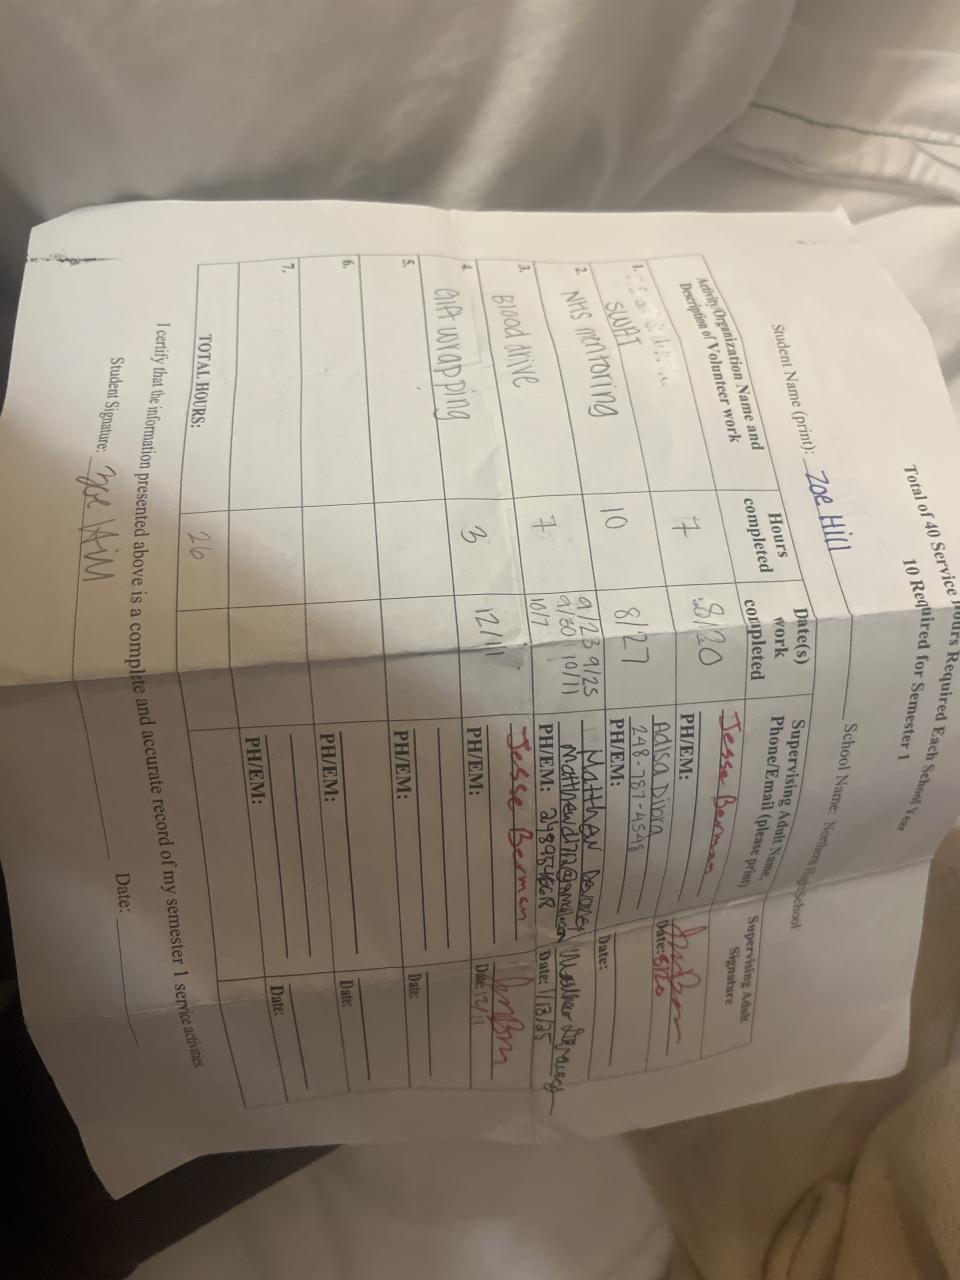 Total of 40 Service Hours Required Each School Year
10 Required for Semester 1
Student Name (print): Zoe Hill School Name: Northern High School
Activity/Organization Name and
Description of Volunteer work
Hours
completed
Date(s)
work
completed
Supervising Adult Name,
Phone/Email (please print)
Supervising Adult
Signature
1. SWAT
7
8/20
Jesse Berman
PH/EM:
Date: 8/20
2. NHS mentoring
10
8/27
Adisa Dibra
248-787-4548
PH/EM:
Date:
3. Blood drive
7
9/23 9/25
9/30 10/11
10/7
Matthew
PH/EM:
Date: 1/13/25
4. Gift wrapping
3
12/11
Jesse Berman
PH/EM:
Date: 12/11
5.
PH/EM:
Date:
6.
PH/EM:
Date:
7.
PH/EM:
Date:
TOTAL HOURS: 26
I certify that the information presented above is a complete and accurate record of my semester 1 service activities
Student Signature: Zoe Hill Date: